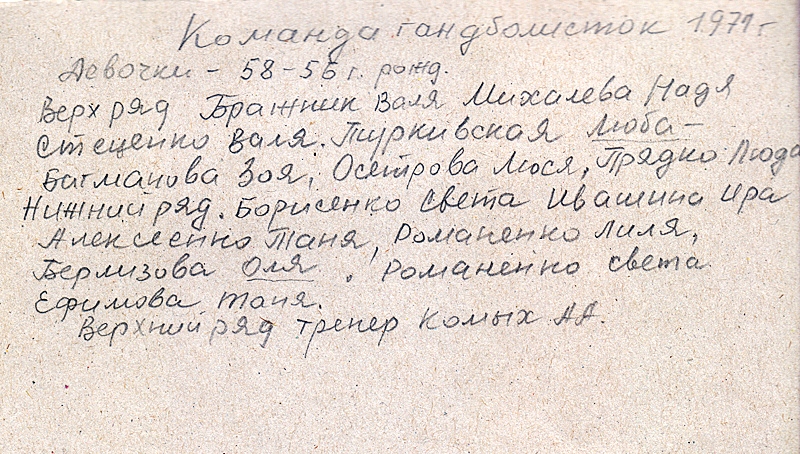 Команда гандболисток 1971 г
Девочки - 58-56 г. рожд.
Верх ряд Бражник Валя Михалева Надя
Стеценко Валя. Туркивская Люба -
Батманова Зоя, Осетрова Люся, Прядко Люда
Нижний ряд. Борисенко Света Ивашина Ира
Алексеенко Таня, Романенко Лиля,
Берлизова Оля, Романенко Света
Ефимова Таня.
Верхний ряд тренер Комых АА.